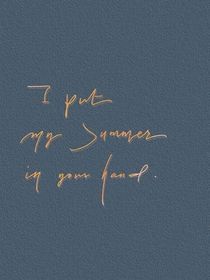 I put
my summer
in your hand.